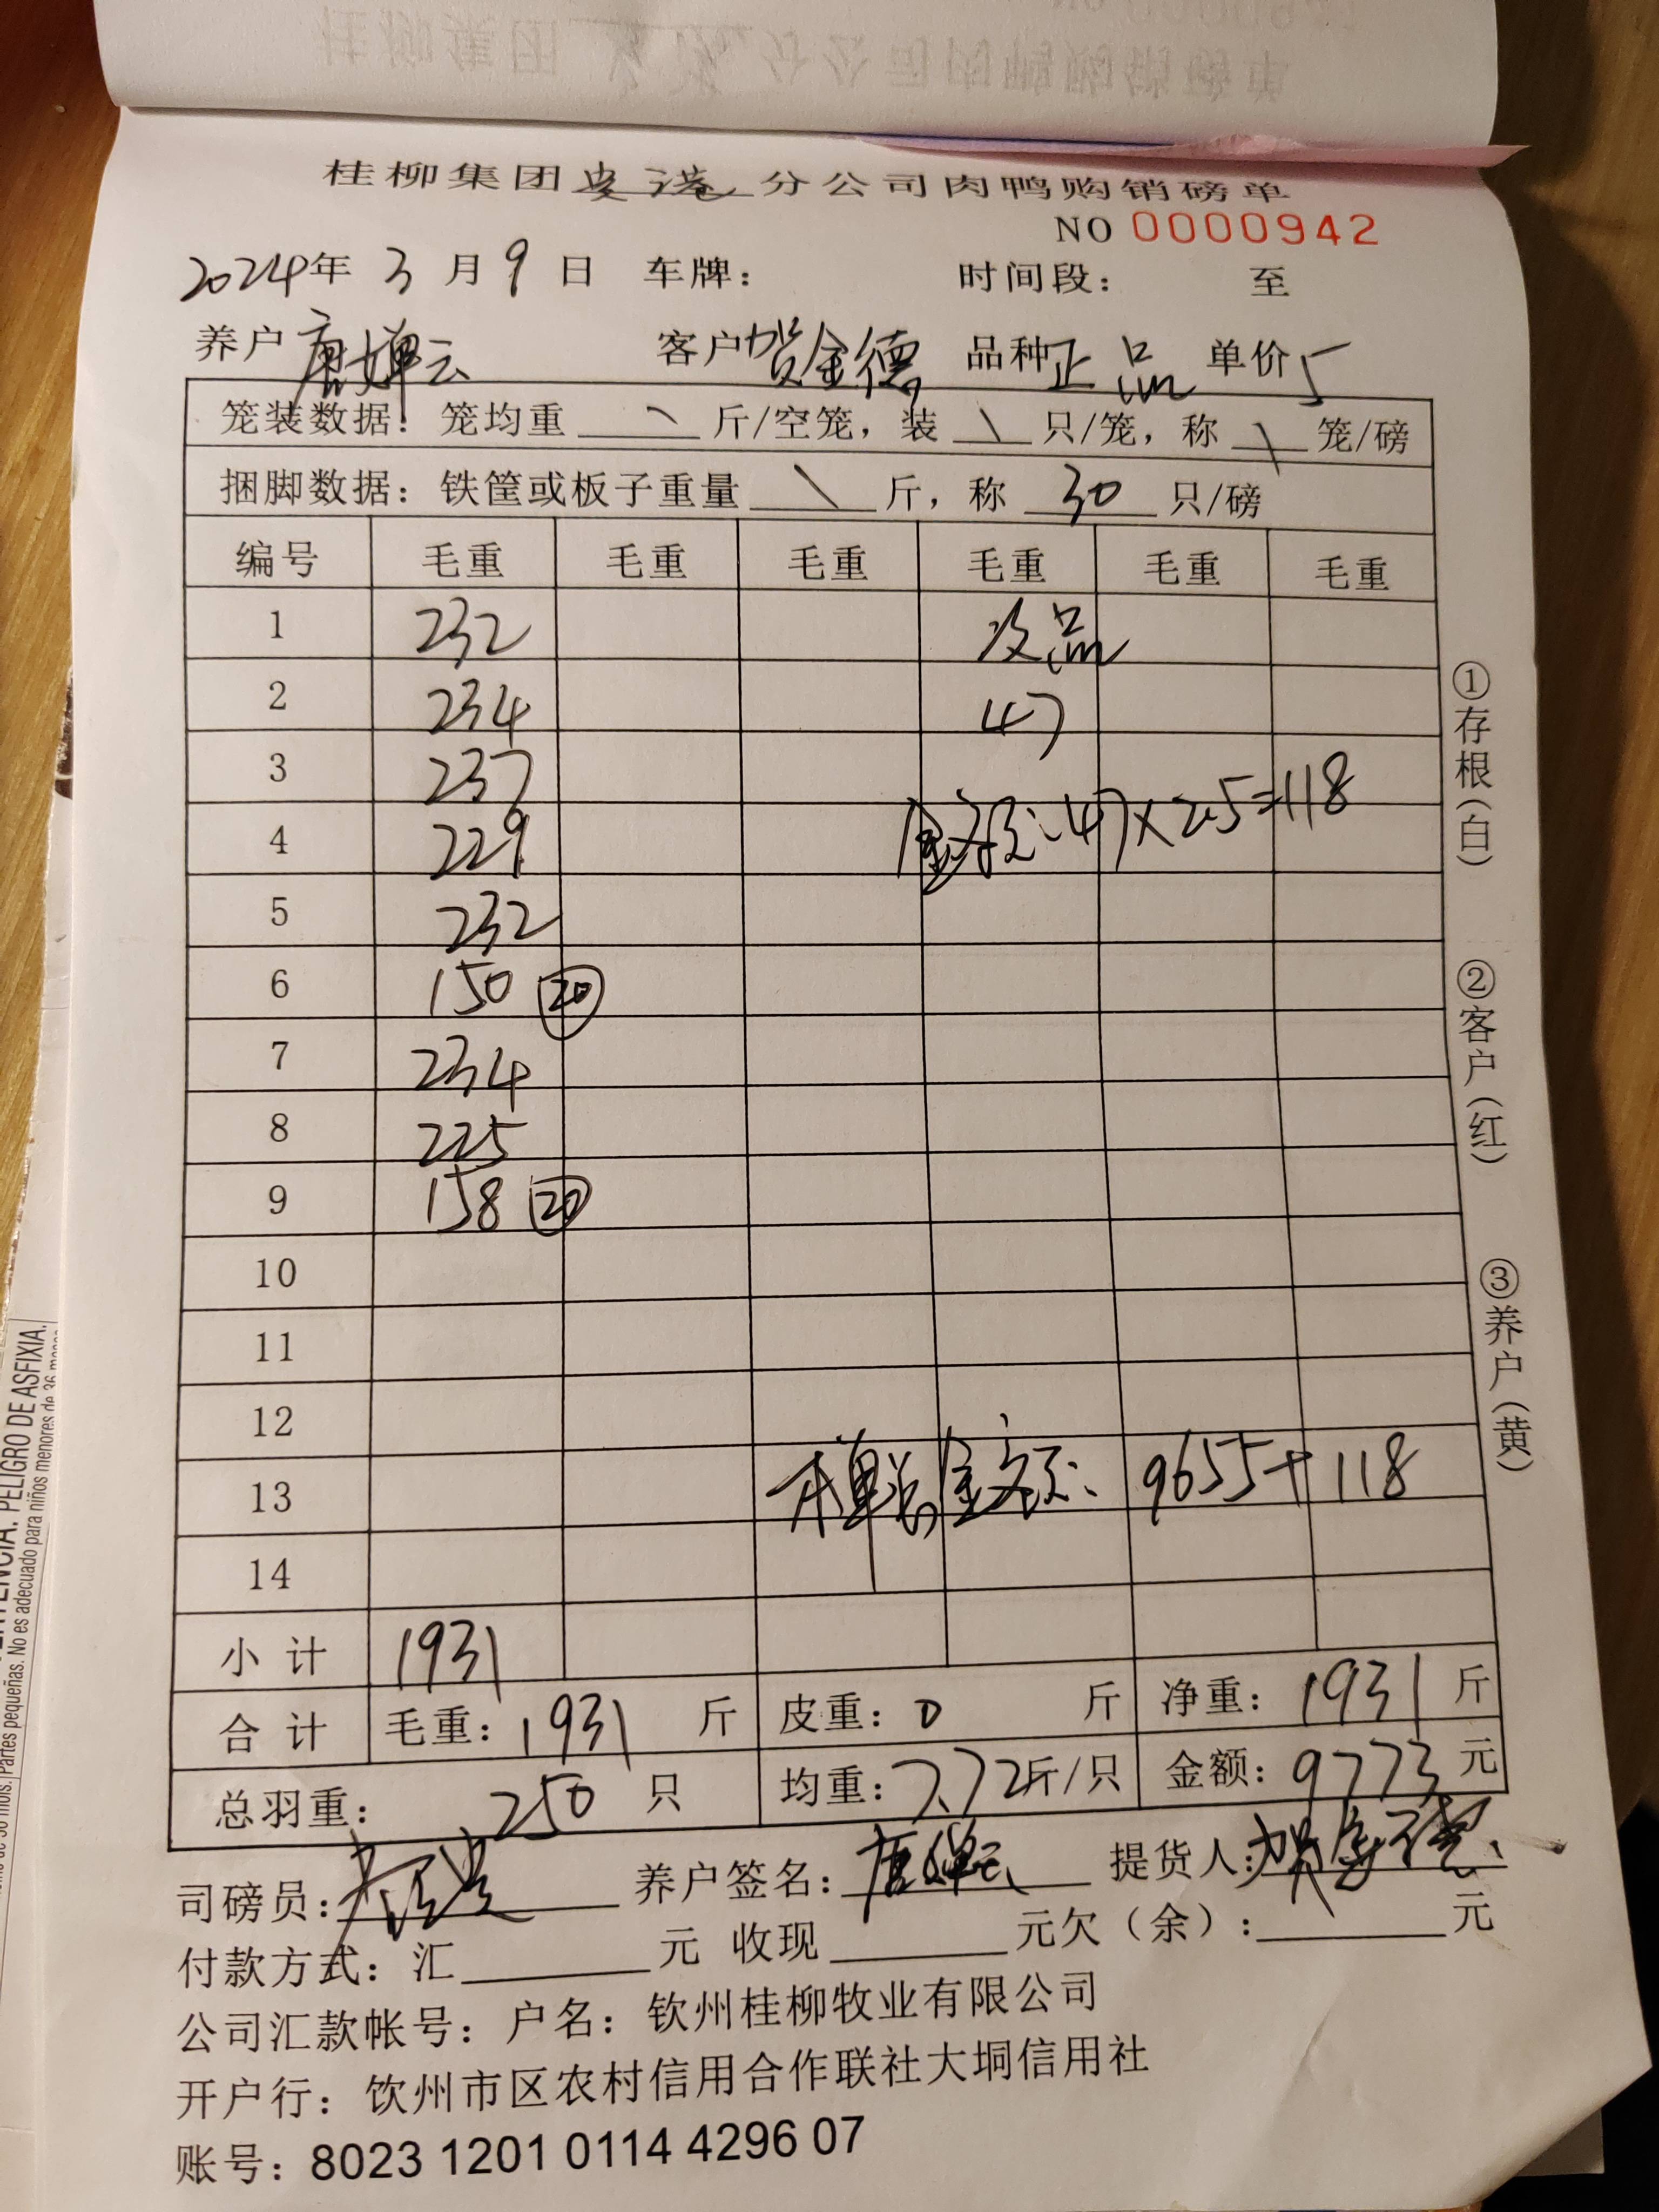 桂柳集团 分公司肉鸭购销磅单
NO 0000942
2024年 3 月 9 日 车牌： 时间段： 至
养户 唐婵云 客户 贺金德 品种 正品 单价 5
笼装数据：笼均重 \ 斤/空笼，装 \ 只/笼，称 \ 笼/磅
捆脚数据：铁筐或板子重量 \ 斤，称 30 只/磅
编号 毛重 毛重 毛重 毛重 毛重 毛重
1 232 次品
2 234 47
3 237
金额：47×2.5=118
4 229
5 232
6 150 ⑳
7 234
8 225
9 158 ⑳
10
11
12
13 本单总金额：9655+118
14
小计 1931
合计 毛重：1931 斤 皮重：0 斤 净重：1931 斤
总羽重： 250 只 均重：7.72斤/只 金额：9773元
司磅员： 养户签名：唐婵云 提货人：贺金德
付款方式：汇 元 收现 元欠（余）： 元
公司汇款帐号：户名：钦州桂柳牧业有限公司
开户行：饮州市区农村信用合作联社大垌信用社
账号：8023 1201 0114 4296 07
①存根（白）
②客户（红）
③养户（黄）
PELIGRO DE ASFIXIA.
Partes pequeñas. No es adecuado para niños menores de 36 meses